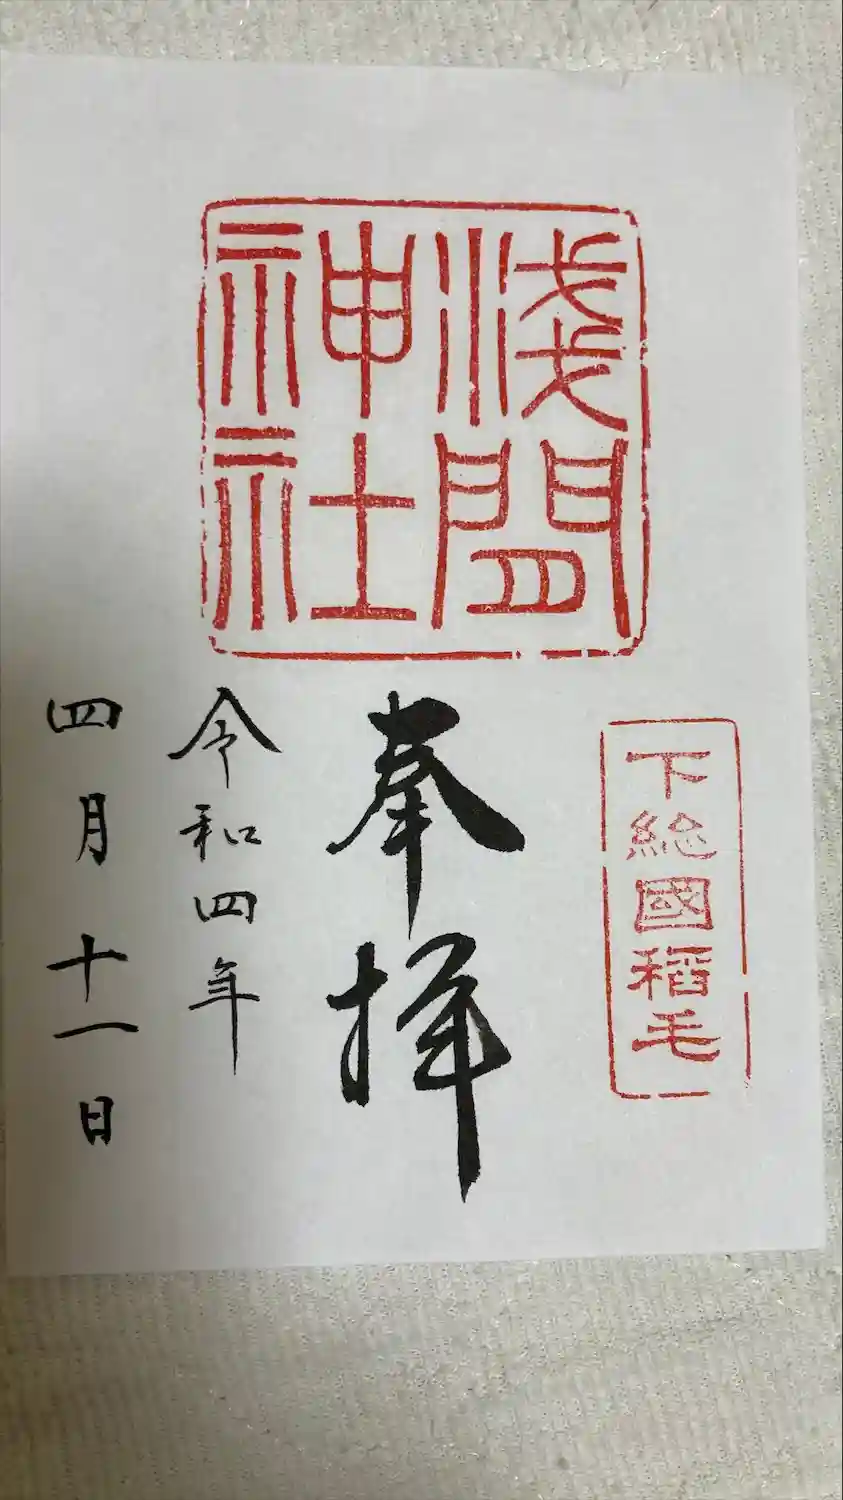 淺間
神社
下総國稲毛
奉拝
令和四年
四月十一日